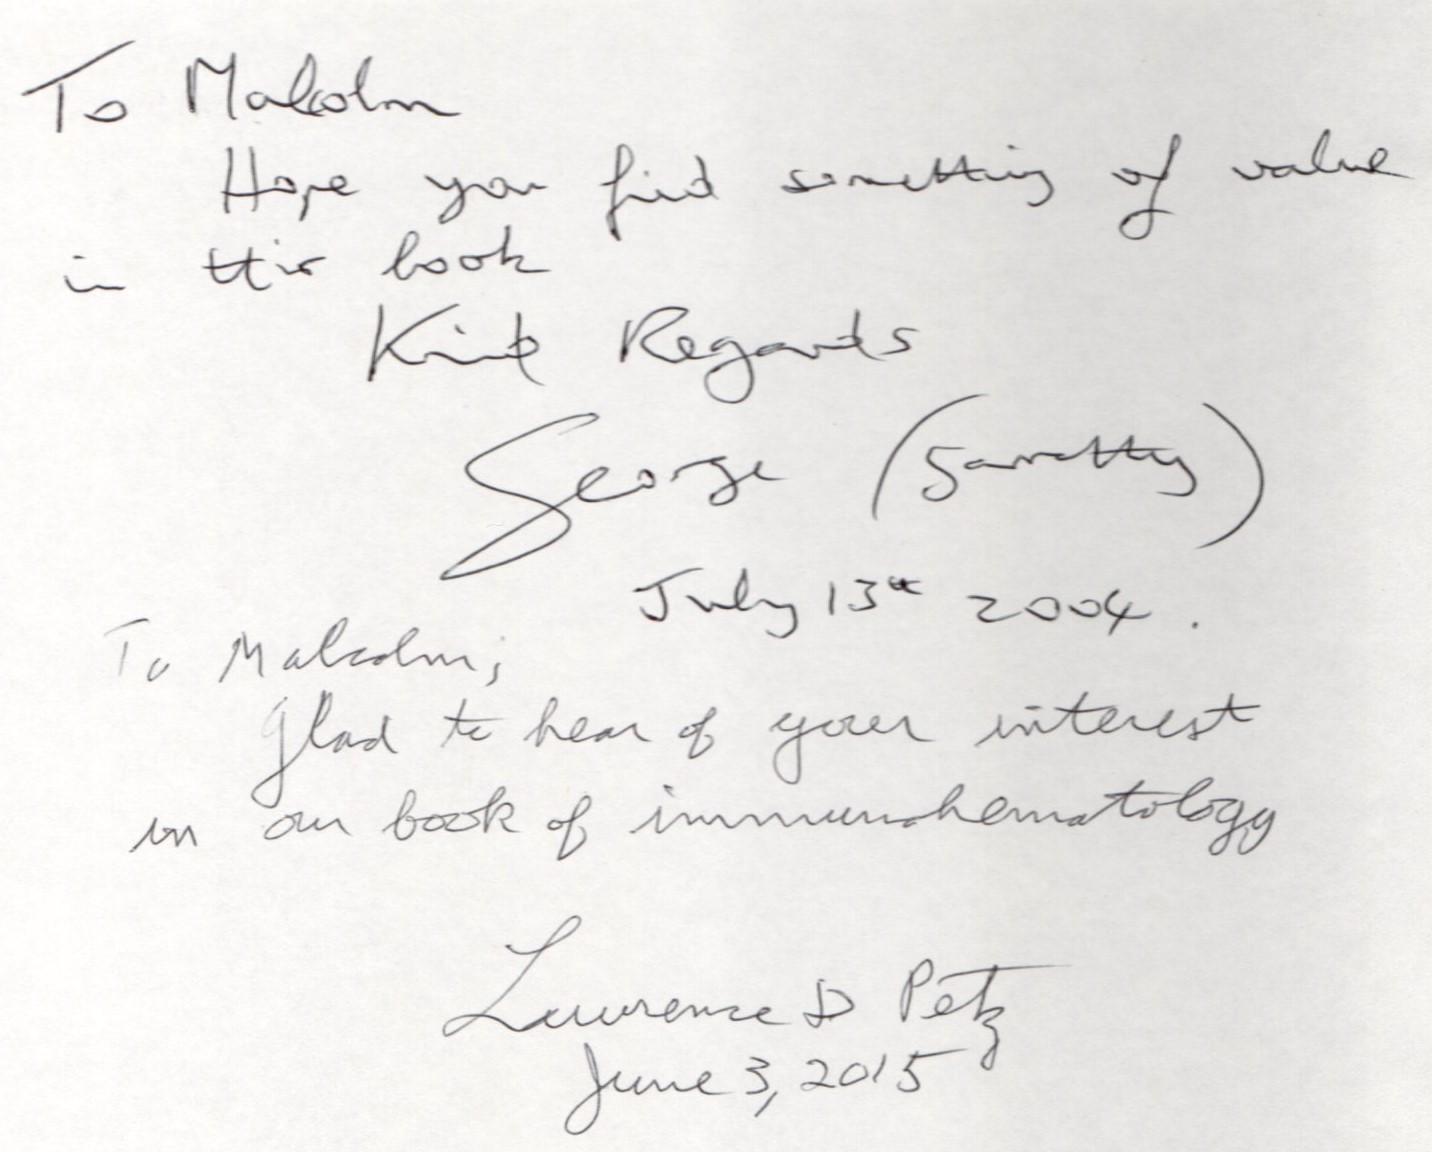 To Malcolm
Hope you find something of value
in this book
Kind Regards
George (Garratty)
July 13th 2004.
To Malcolm;
Glad to hear of your interest
in our book of immunohematology
Lawrence D Petz
June 3, 2015